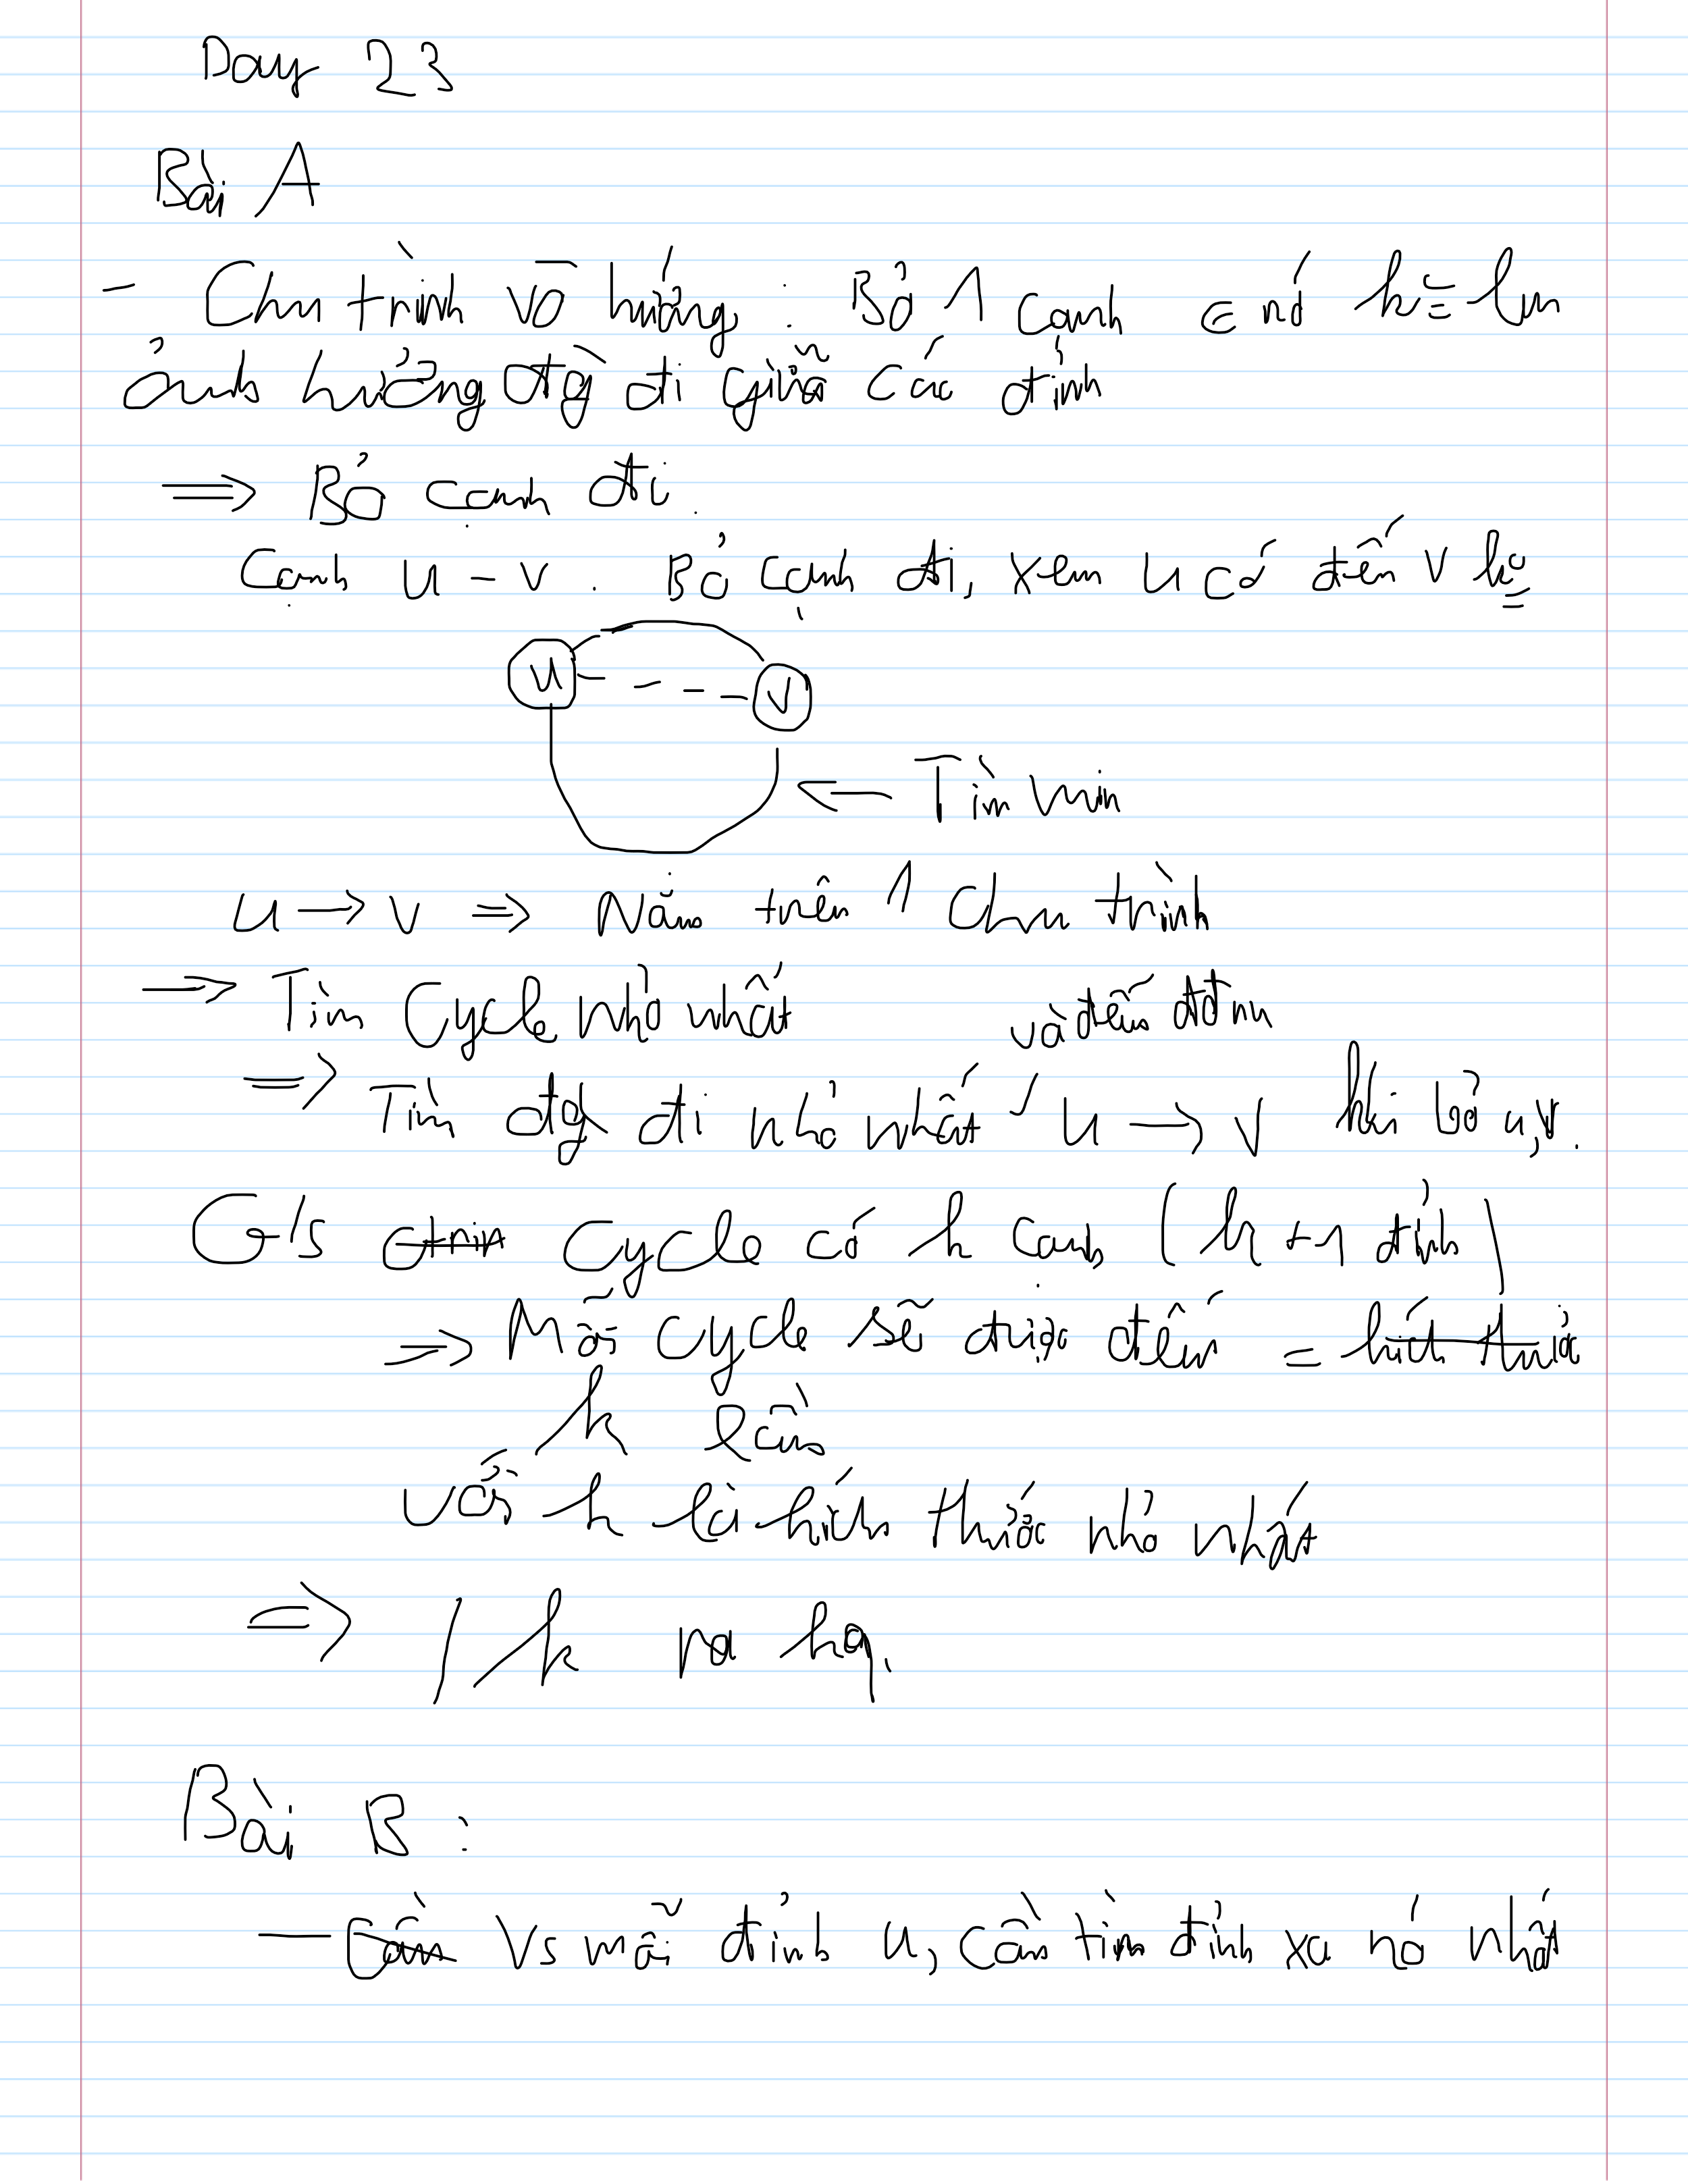 Day 23
Bài A
- Chu trình vô hướng: Bỏ 1 cạnh ∈ nó k làm
ảnh hưởng đg đi giữa các đỉnh
⇒ Bỏ cạnh đi.
Cạnh u - v. Bỏ cạnh đi, xem u có đến v ko
u v
← Tìm min
u → v ⇒ Nằm trên 1 chu trình
⇒ Tìm cycle nhỏ nhất
và đếm
⇒ Tìm đg đi nhỏ nhất u → v khi bỏ u,v.
G/s ctrin cycle có k cạnh (k+1 đỉnh)
⇒ Mỗi cycle sẽ được đếm = kích thước
k lần
với k là kích thước nhỏ nhất
⇒ / k ra kq.
Bài B:
- Cần Vs mỗi đỉnh u, cần tìm đỉnh xa nó nhất